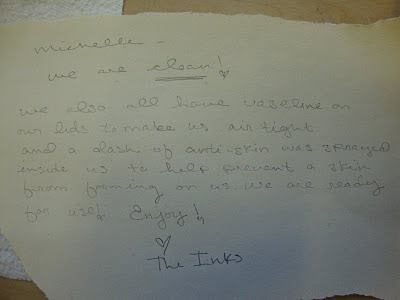 Michelle -
we are clean!
we also all have vaseline on
our lids to make us air tight
and a dash of anti-skin was sprayed
inside us to help prevent a skin
from forming on us. We are ready
for use! Enjoy!
The Inks